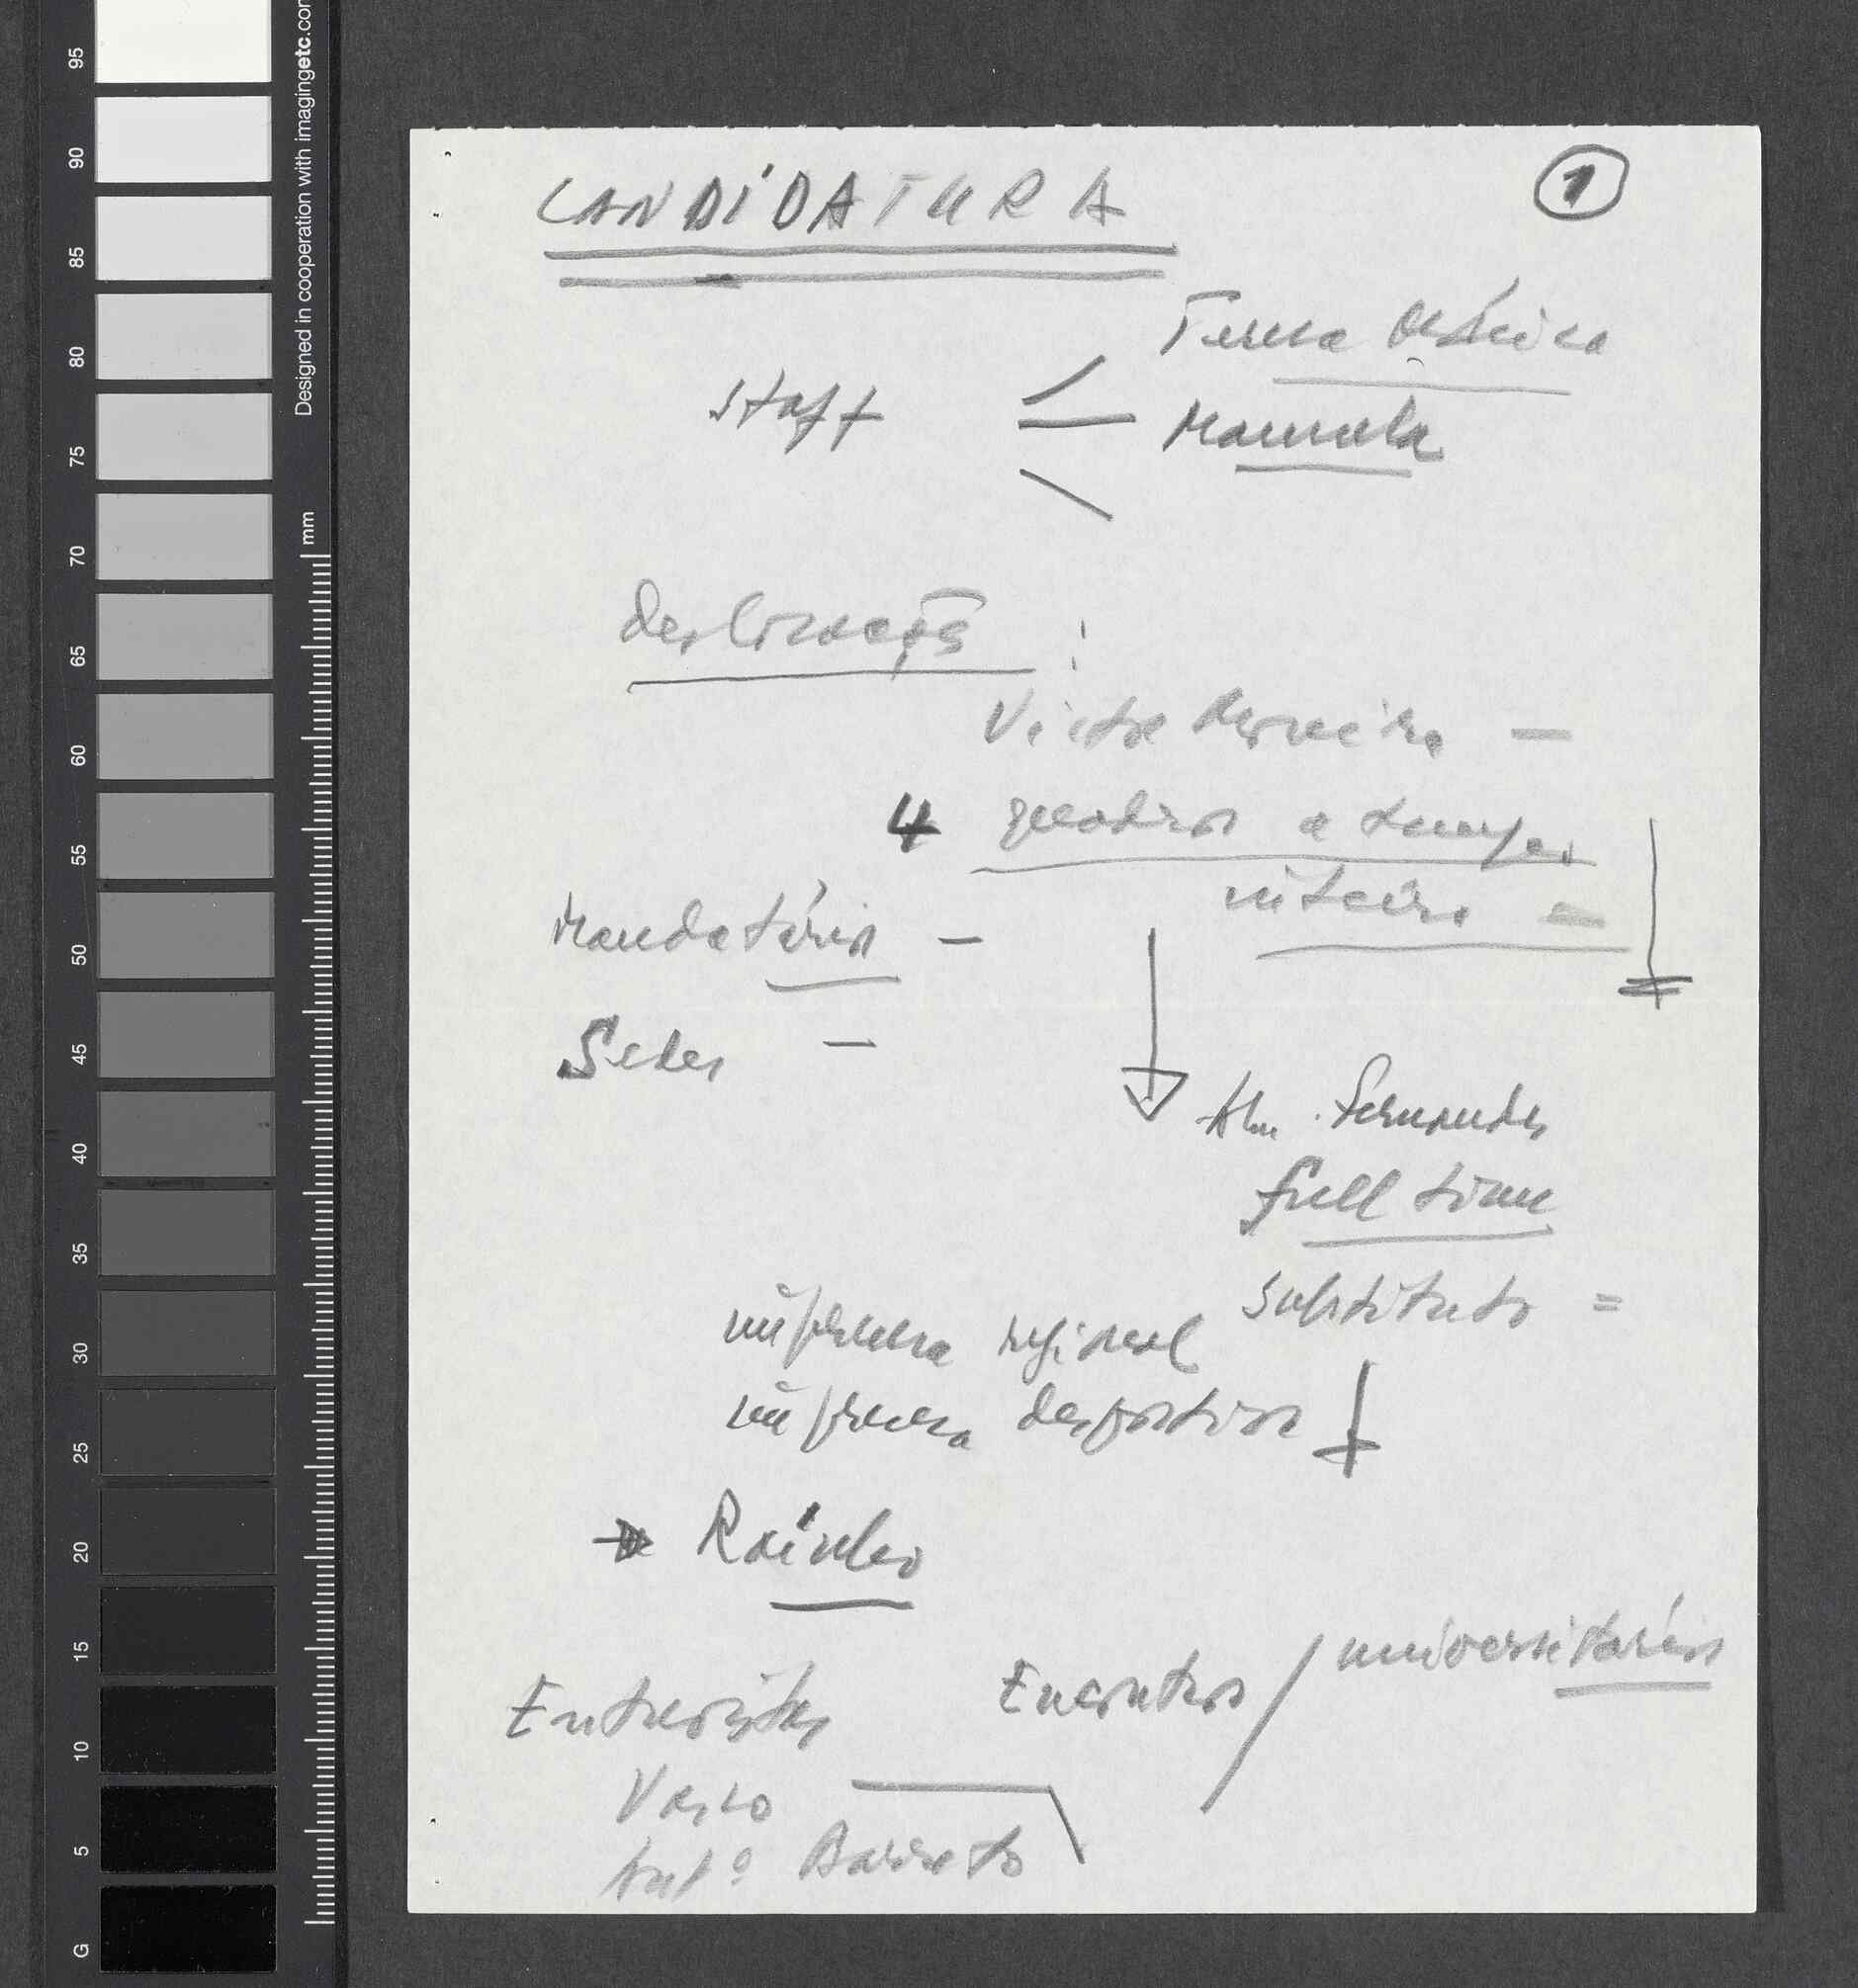 CANDIDATURA
1
Teresa
Staff
Manuela
deslocação :
Victor
4 quadros a tempo
inteiro =
Mandatários -
Sedes -
Alm. Fernandes
full time
substituto =
imprensa regional
imprensa desportiva
Rainho
Entrevistas
Encontros / universitários
Vasco
Antº Barreto
95
90
85
80
75
70
65
60
55
50
45
40
35
30
25
20
15
10
5
G
mm
Designed in cooperation with imagingetc.com